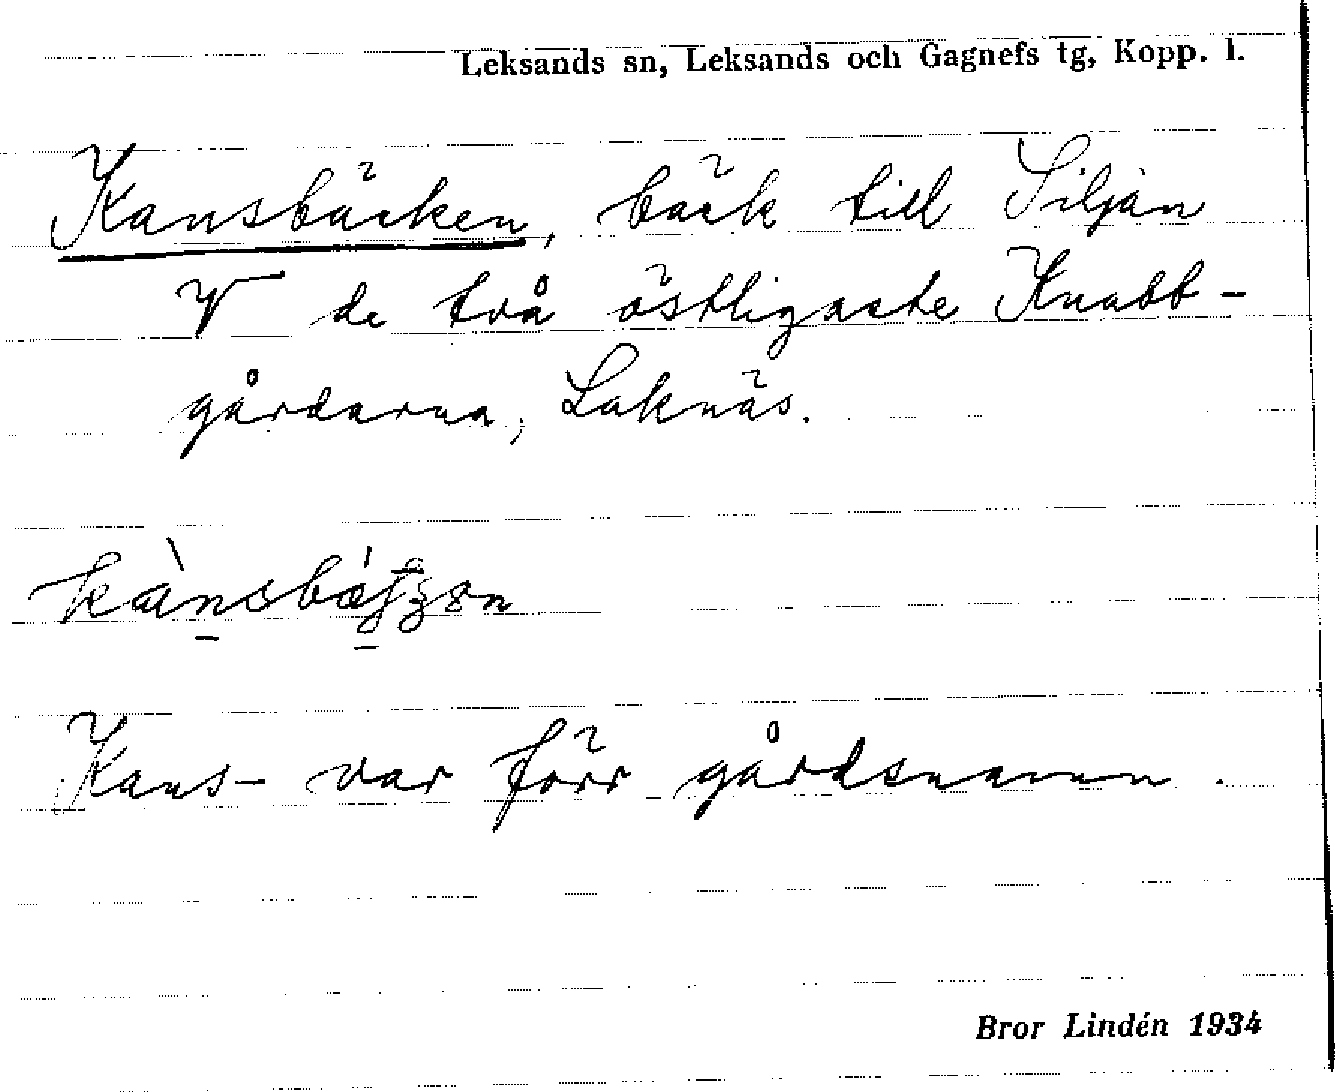 Leksands sn, Leksands och Gagnefs tg, Kopp. l.
Kansbäcken, bäck till Siljan
V de två östligaste Knabb-
gårdarna, Laknäs.
Kans- var förr gårdsnamn.
Bror Lindén 1934